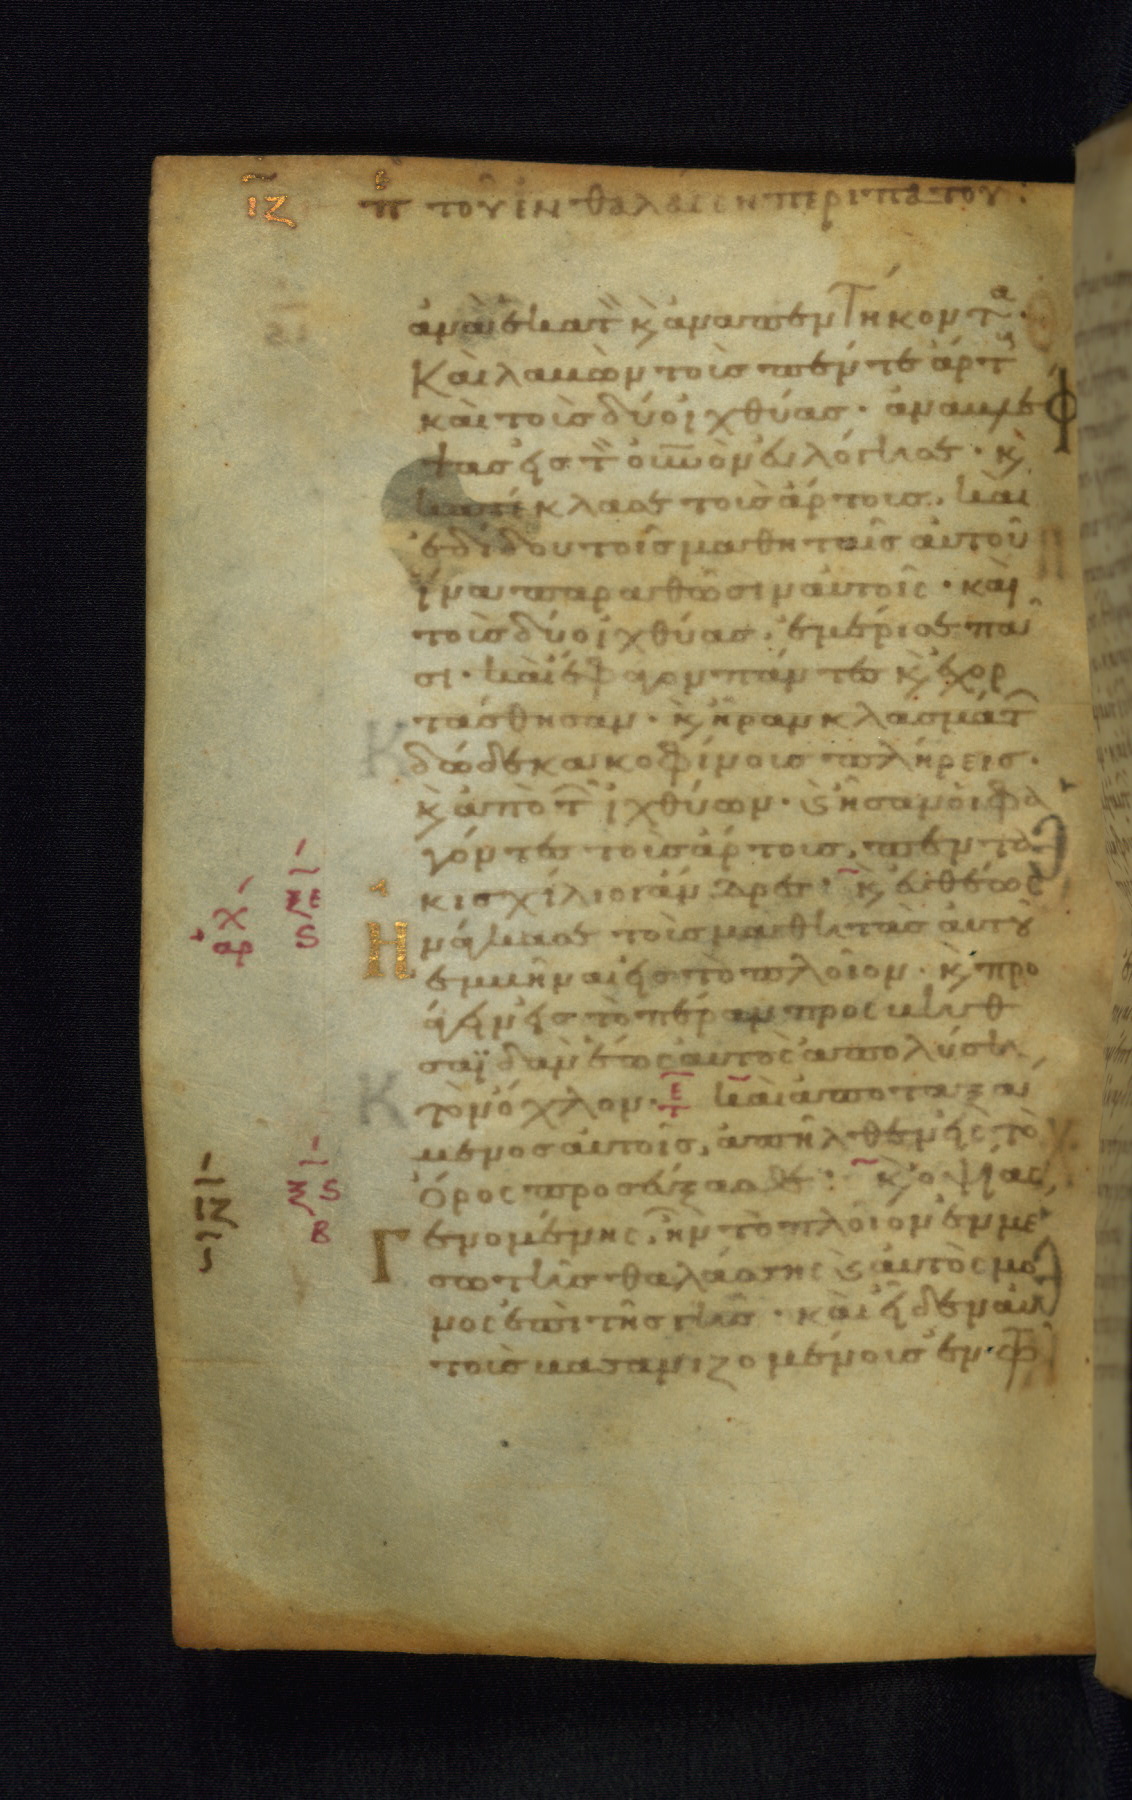 ιζ π(ε) τοῦ ἐν θαλάσση περιπάτου:
ἀνὰ ἑκατ(ὸν) κ(αὶ) ἀνὰ πεντήκοντα·
Καὶ λαβὼν τοὺς πέντε ἄρτ(ους)
καὶ τοὺς δύο ἰχθύας· ἀναβλέ
ψας εἰς τ(ὸν) οὐ(ρα)νὸν εὐλόγησε· κ(αὶ)
κατέκλασε τοὺς ἄρτους, καὶ
ἐδίδου τοῖς μαθηταῖς αὐτοῦ
ἵνα παραθῶσιν αὐτοῖς· καὶ
τοὺς δύο ἰχθύας, ἐμέρισε πᾶ
σι· καὶ ἔφαγον πάντες κ(αὶ) ἐχορ
τάσθησαν· κ(αὶ) ἦραν κλασμάτ(ων)
δώδεκα κοφίνους πλήρεις·
κ(αὶ) ἀπὸ τ(ῶν) ἰχθύων· κ(αὶ) ἦσαν οἱ φα
γόντες τοὺς ἄρτους, πεντα
κισχίλιοι ἄνδρες· κ(αὶ) εὐθέως
ἠνάγκασε τοὺς μαθητὰς αὐτοῦ
ἐμβῆναι εἰς τὸ πλοῖον· κ(αὶ) προ
άγειν εἰς τὸ πέραν πρὸς βηθ
σαϊδὰν ἕως αὐτὸς ἀπολύση
τὸν ὄχλον· καὶ ἀποταξά
μενος αὐτοῖς, ἀπῆλθεν εἰς τὸ
ὄρος προσεύξασθαι· κ(αὶ) ὀψίας
Γενομένης, ἦν τὸ πλοῖον ἐν μέ
σω τῆς θαλάσσης κ(αὶ) αὐτὸς μό
νος ἐπὶ τῆς γῆς· καὶ εἶδεν αὐ
τοὺς βασανιζομένους ἐν τῶ